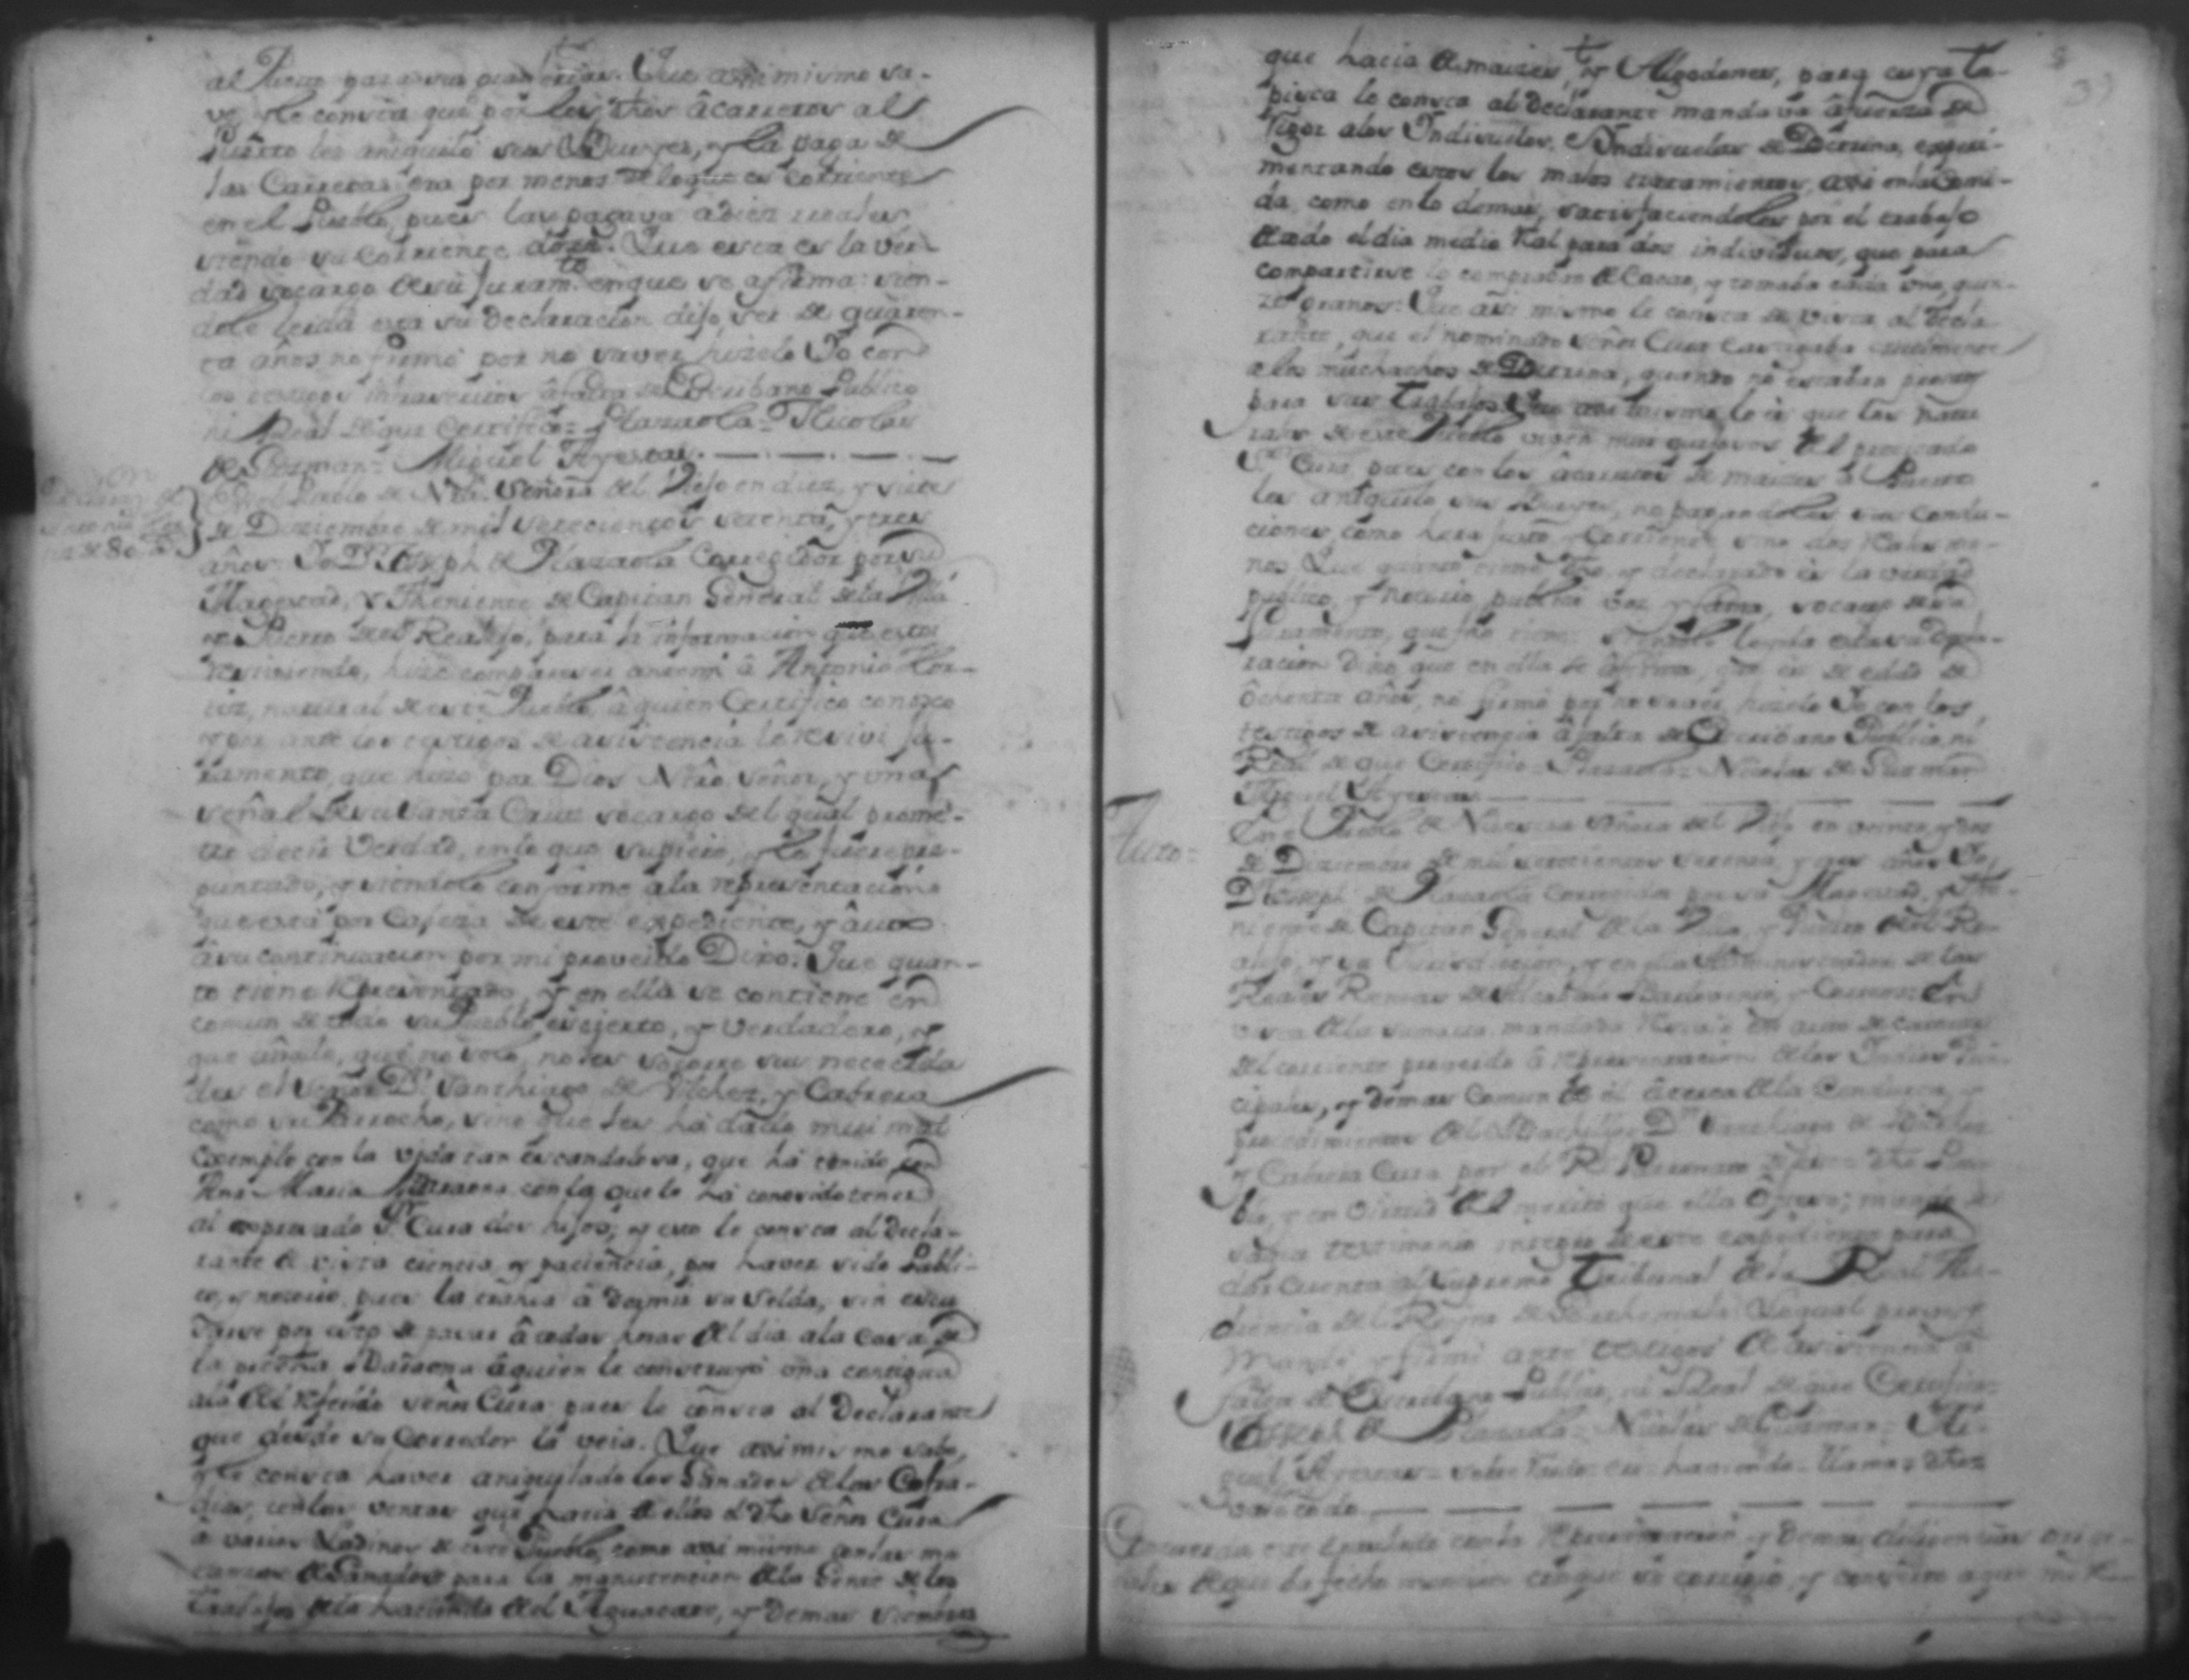 al Puerto para sus grangerias. Que assimismo sa-
ve, y le consta que por los dhos âcarretos al
Puerto les aniquiló sus Bueyes, y la paga de
las Carretas era por menos de lo que es corriente
en el Pueblo, pues las pagava a diez reales
siendo su corriente doze. Que esta es la ver-
dad socargo de su Juramto. en que se afirma: sien-
dole leida esta su declaracion dijo, ser de quaren-
ta años no firmó por no saver, hizelo Yo con
los testigos infrascritos â falta de Escribano Publico
ni Real de que Certifico= Plazaola= Nicolas
de Guzman= Miguel Ayestas.
En el Pueblo de Ntrâ. Señora del Viejo en diez, y siete
de Diziembre de mil setecientos setenta, y tres
años. Yo Dn. Joseph de Plazaola Corregidor por su
Magestad, y Theniente de Capitan General de la Villa
y Puerto del Realejo, para la informacion que estoi
reciviendo, hize comparecer ante mi â Antonio Hor-
tiz, natural de este Pueblo, â quien Certifico conosco
y por ante los testigos de asistencia le recivi ju-
ramento, que hizo por Dios Ntrô Señor, y una
señal de su Santa Cruz socargo del qual prome-
tio decir Verdad, en lo que supiere, y le fuere pre-
guntado, y siendolo conforme a la representacion
que está por Caveza de este expediente, y âuto
â su continuacion por mi proveido Dixo: Que quan-
to tiene representado, y en ella se contiene en
comun de todo su Pueblo, es cierto, y verdadero, y
que añade, que no solo, no les socorre sus necesida
des el Señor Dn. Santhiago de Vilchez, y Cabrera
como su Parrocho, sino que les há dado mui mal
Exemplo con la vida tan escandalosa, que há tenido con
Ana Maria Barraona con la que le há conosido tener
al expresado Sr. Cura dos hijos, y esto le consta al Decla-
rante de vista ciencia, y paciencia, por haver sido Publi-
co, y notorio, pues la trahia â dormir su Selda, sin
â todas horas del dia a la Casa de
la Barraona â quien le construyó una contigua
a la del referido señor Cura pues le consta al Declarante
que desde su Corredor la veia. Que asimismo sabe,
y le consta haver aniquilado los Ganados de las Cofra-
dias, con las ventas que hacia de ellos el dho Señor Cura
â varios Ladinos de este Pueblo, como assi mismo con las ma
tanzas de Ganados para la manutencion de la Gente de los
trabajos de la hacienda del Aguacate, y demas siembras
que hacia de maizes, y Algodones, para cuya ta-
pisca le consta al declarante mandava â fuerza de
rigor a los Indisuelos, e Indisuelas de Dotrina, experi-
mentando estos los malos tratamientos, assi en la comi-
da, como en lo demas, satisfaciendoles por el trabajo
de todo el dia medio Real para dos individuos, que para
compartirse lo compraban de Cacao, y tomaba cada uno, quin-
ze granos: Que assi mismo le consta de vista al Decla-
rante, que el nominado señor Cura castigaba cruelmente
a los muchachos de Dotrina, quando no estaban promptos
para sus trabajos. Que assi mismo, los natu
rales de este Pueblo viven mui quejosos del precitado
Sr. Cura, pues con los âcarretos de maizes â Puerto
les aniquiló sus Bueyes, no pagandoles sus condu-
ciones, como hera justo, y Corriente, sino dos Reales me-
nos. Que quanto tiene dho, y declarado es la verdad
publico, y notorio, publica voz, y fama, socargo de su
Juramento, que fho tiene; y leida esta su decla-
racion dixo, que en ella se âfirma, que es de edad de
ôchenta años, no firmó por no saver, hizelo Yo con los
testigos de asistencia â falta de Escribano Publico, ni
Real de que Certifico= Plazaola= Nicolas de Guzman=
Miguel Ayestas
Auto=
En el Pueblo de Nuestra Señora del Viejo en veinte, y dos
de Diziembre de mil setecientos setenta, y tres años Yo
Dn. Joseph de Plazaola Corregidor por su Magestad, y The-
niente de Capitan General de la Villa, y Puerto del Re-
alejo, y su Jurisdiccion, y en ella Administrador de las
Reales Rentas de Alcabala Barlovento, y Correos: En
vista de la sumaria mandada recivir en auto de
del corriente proveido â representacion de los Indios Prin-
cipales, y demas Comun de él âcerca de la conducta, y
procedimientos del Bachiller Dn. Santhiago de Vilchez
y Cabrera Cura por el Rl. Patronato de este dho Pue-
blo, y en virtud del merito que ella ôfrece; mando se
saque testimonio integro de este expediente para
dar cuenta al Supremo Tribunal de la Real Au-
diencia de el Reyno de Goathemala. Lo qual provei,
mandé, y firmé ante testigos de asistencia â
falta de Escribano Publico, ni Real de que Certifico=
Joseph de Plazaola= Nicolas de Guzman= Mi-
guel Ayestas=
Concuerda este expediente con la representacion y demas diligencias origi-
nales de que ba fecha mencion con que se corrigió, y